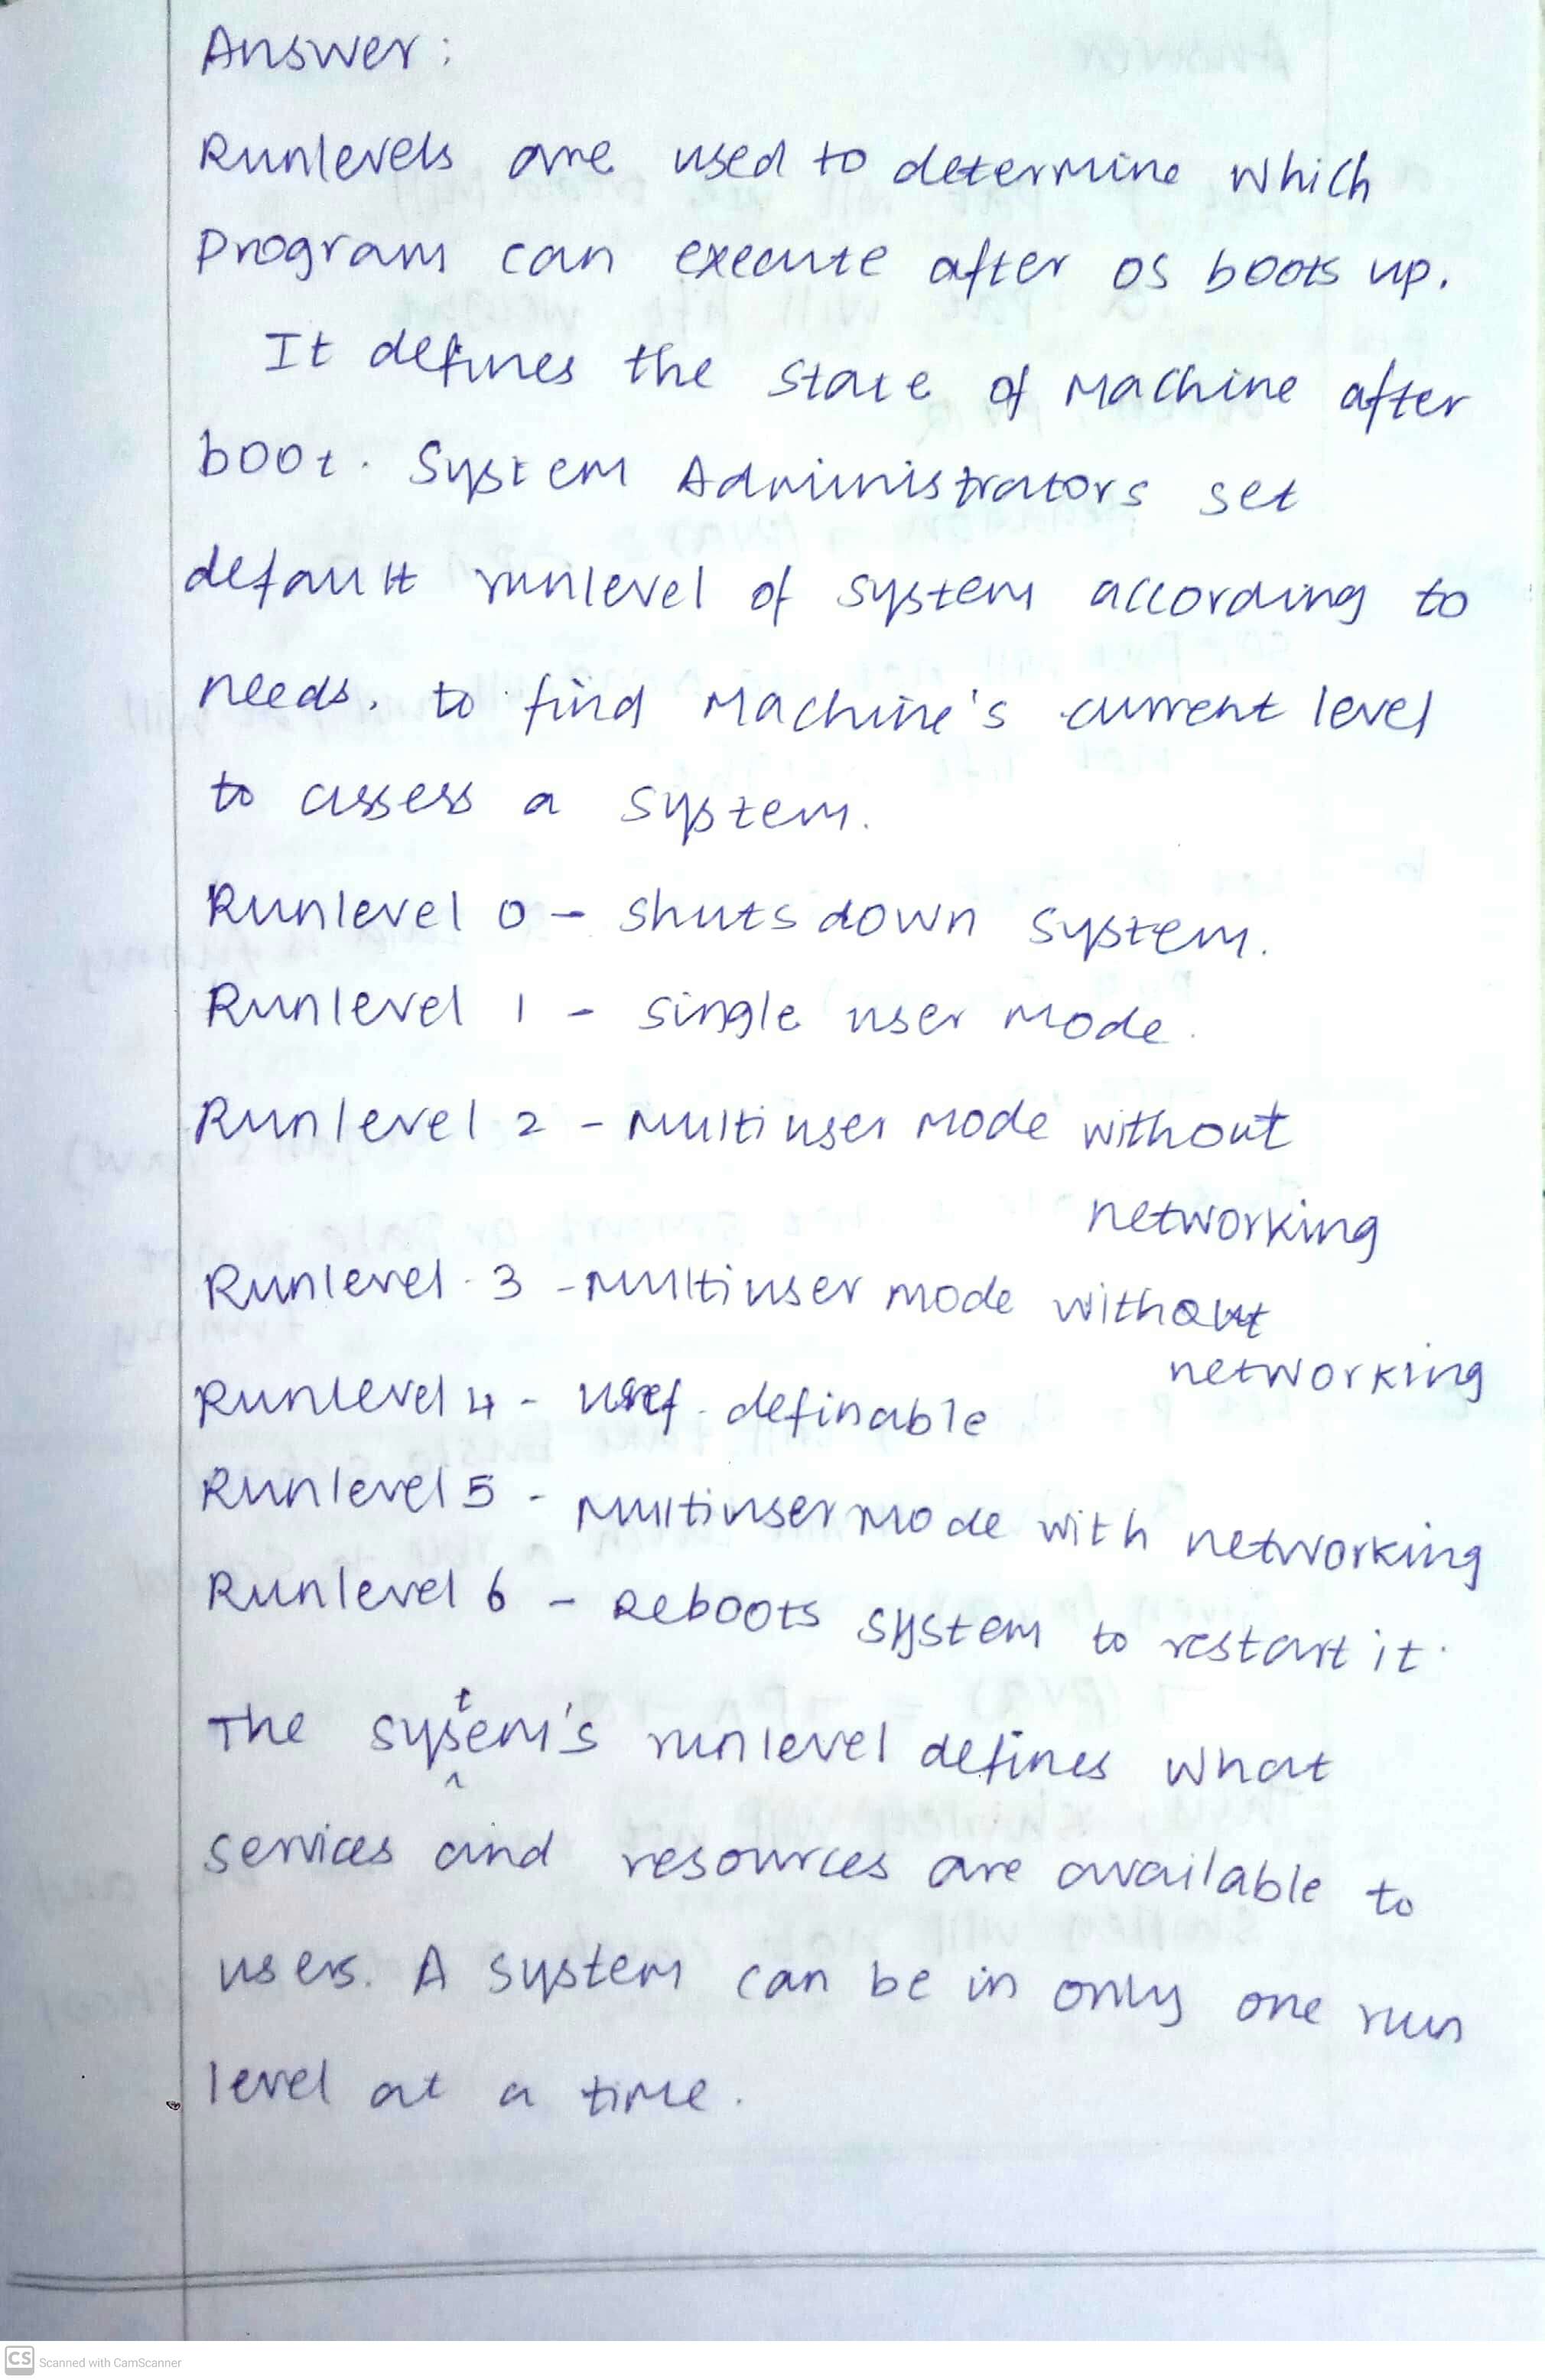 Answer:
Runlevels are used to determine which
Program can execute after OS boots up.
It defines the state of Machine after
boot. System Administrators set
default runlevel of system according to
needs. to find Machine's current level
to assess a system.
Runlevel 0 - shuts down system.
Runlevel 1 - single user Mode.
Runlevel 2 - Multiuser Mode without
networking
Runlevel 3 - Multiuser mode without
networking
Runlevel 4 - user definable
Runlevel 5 - Multiuser Mode with networking
Runlevel 6 - Reboots system to restart it.
The system's runlevel defines what
services and resources are available to
users. A system can be in only one run
level at a time.
CS Scanned with CamScanner